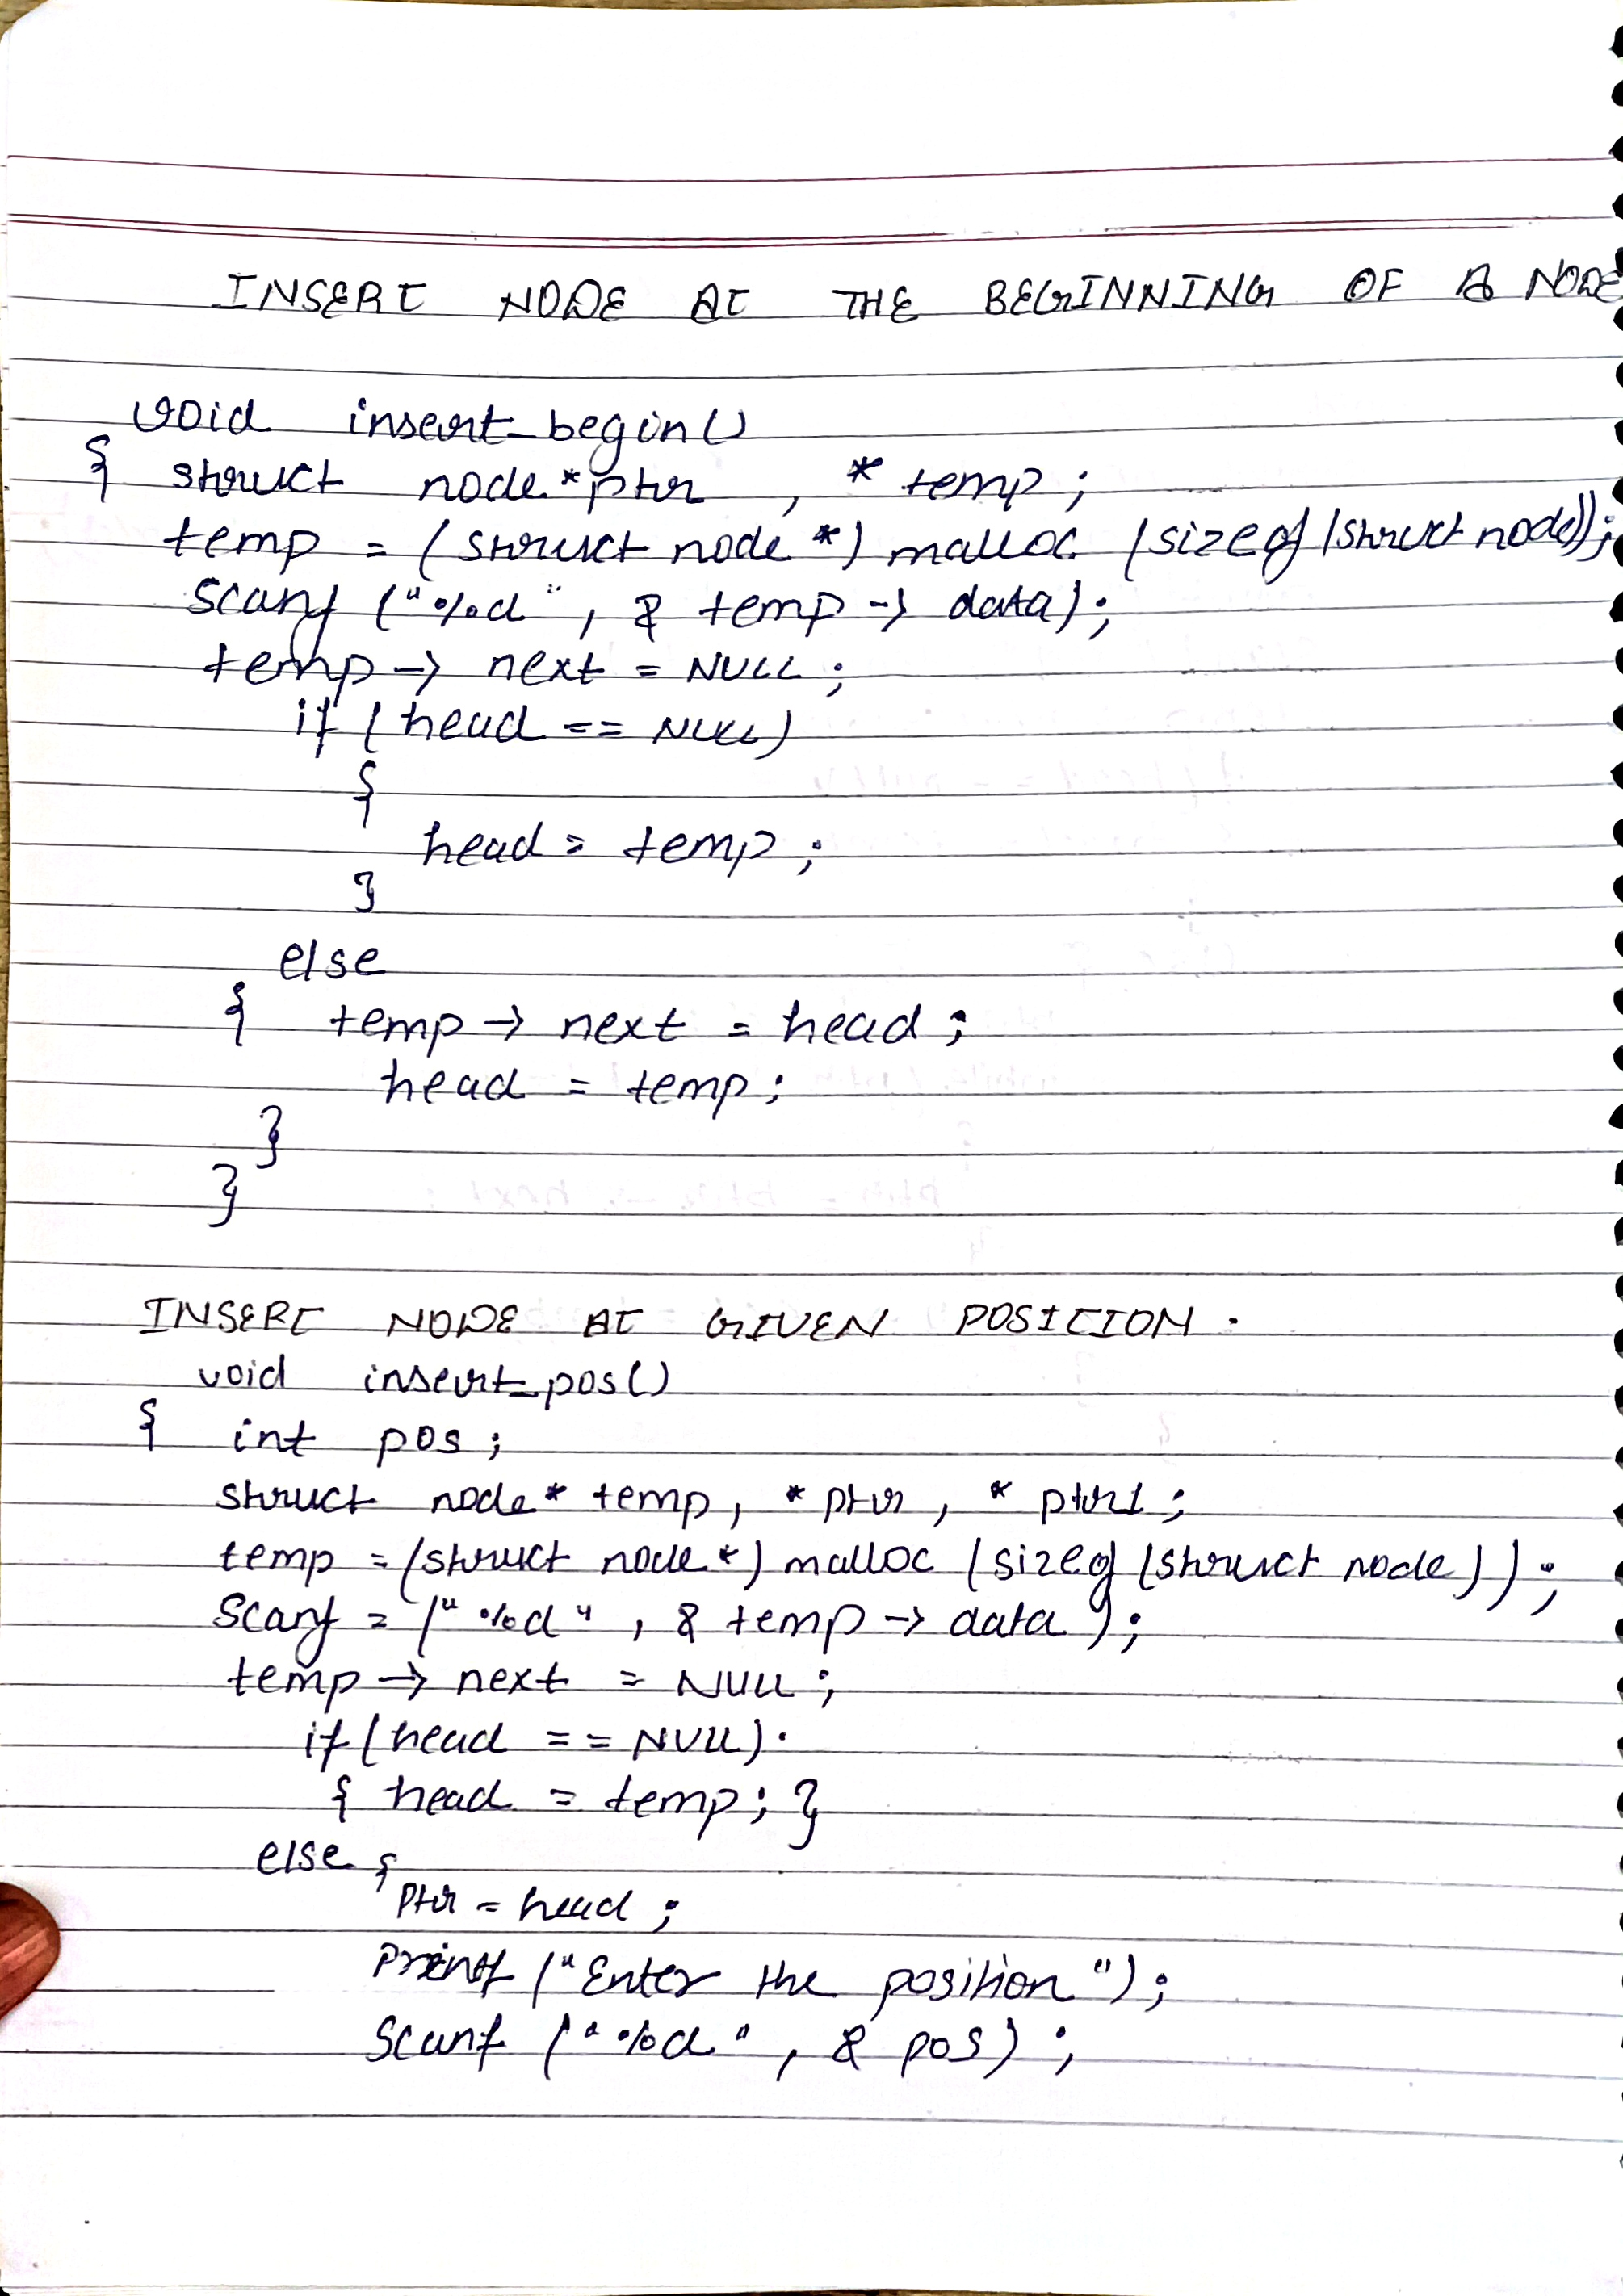 INSERT NODE AT THE BEGINNING OF A NODE
void insert_begin()
{ struct node *ptr , * temp ;
temp = (struct node *) malloc (sizeof (struct node));
scanf ("%d" , & temp -> data) ;
temp -> next = NULL ;
if (head == NULL)
{
head = temp ;
}
else
{ temp -> next = head ;
head = temp ;
}
}
INSERT NODE AT GIVEN POSITION .
void insert_pos()
{ int pos ;
struct node * temp , * ptr , * ptr1 ;
temp = (struct node *) malloc (sizeof (struct node)) ;
Scanf = ("%d" , & temp -> data) ;
temp -> next = NULL ;
if (head == NULL) .
{ head = temp ; }
else {
ptr = head ;
Printf ("Enter the position") ;
Scanf ("%d" , & pos) ;